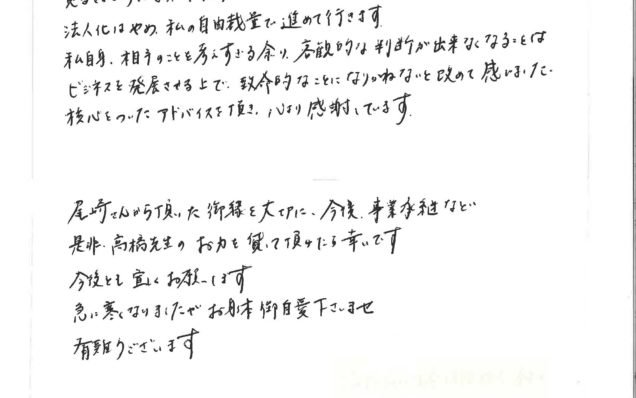 法人化はやめ、私の自由裁量で進めて行きます
私自身、相手のことを考えすぎる余り、客観的な判断が出来なくなることは
ビジネスを発展させる上で、致命的なことになりかねないと改めて感じました。
核心をついたアドバイスを頂き、心より感謝しています。
尾崎さんから頂いた御縁を大切に、今後、事業承継など
是非、高橋先生のお力を貸して頂けたら幸いです
今後とも宜しくお願いします
急に寒くなりましたがお身体御自愛下さいませ
有難うございます